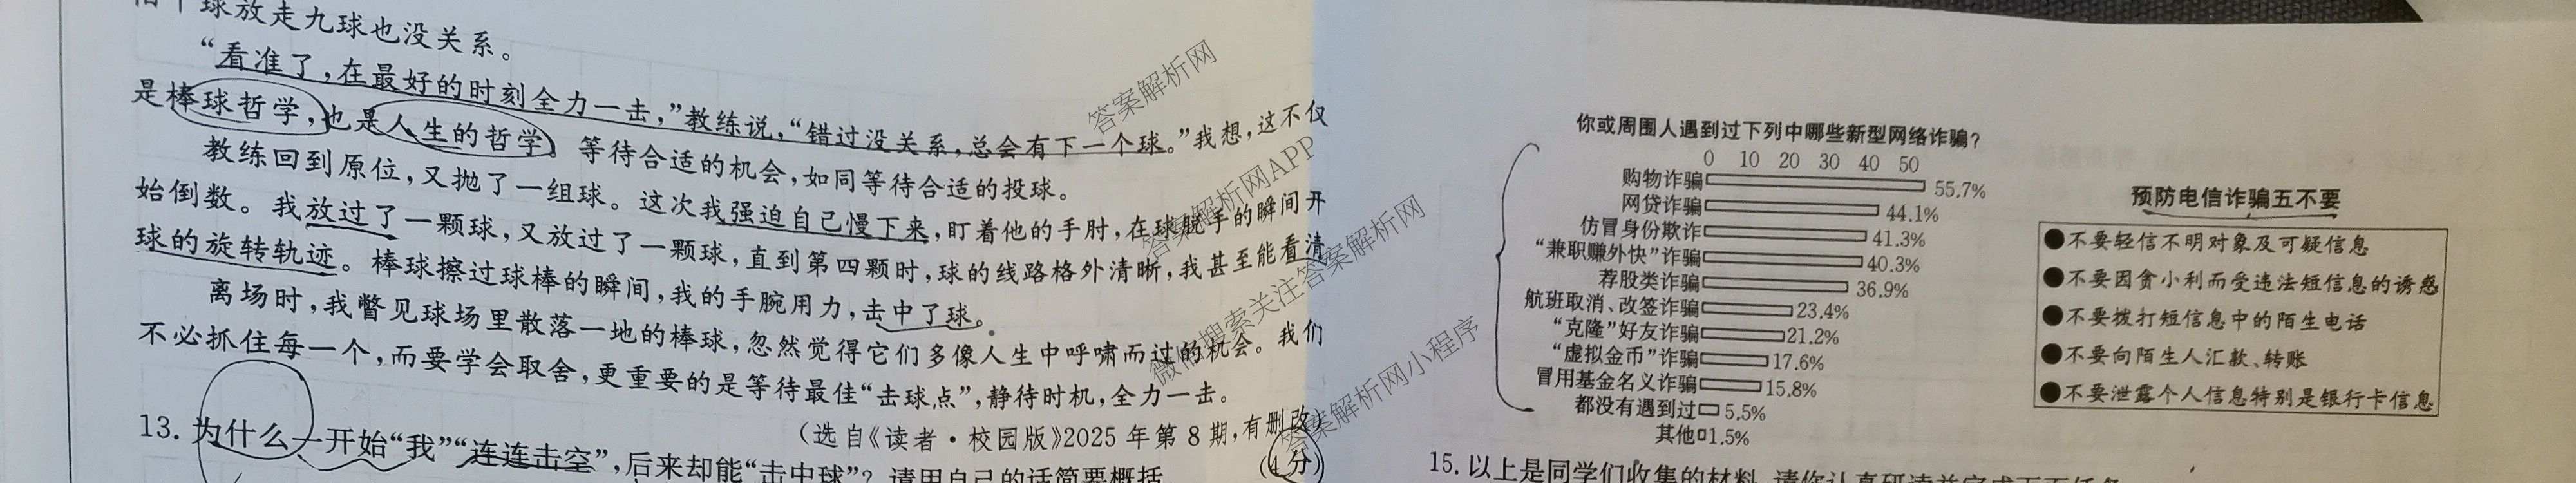 球放走九球也没关系。
“看准了，在最好的时刻全力一击，”教练说，“错过没关系，总会有下一个球。”我想，这不仅
是棒球哲学，也是人生的哲学。等待合适的机会，如同等待合适的投球。
教练回到原位，又抛了一组球。这次我强迫自己慢下来，盯着他的手肘，在球脱手的瞬间开
始倒数。我放过了一颗球，又放过了一颗球，直到第四颗时，球的线路格外清晰，我甚至能看清
球的旋转轨迹。棒球擦过球棒的瞬间，我的手腕用力，击中了球。
离场时，我瞥见球场里散落一地的棒球，忽然觉得它们多像人生中呼啸而过的机会。我们
不必抓住每一个，而要学会取舍，更重要的是等待最佳“击球点”，静待时机，全力一击。
（选自《读者·校园版》2025年第8期，有删改）
13. 为什么一开始“我”“连连击空”，后来却能“击中球”？请用自己的话简要概括。（4分）
答案解析网
答案解析网APP
微信搜索关注答案解析网
答案解析网小程序
你或周围人遇到过下列中哪些新型网络诈骗？
0 10 20 30 40 50
购物诈骗 55.7%
网贷诈骗 44.1%
仿冒身份欺诈 41.3%
“兼职赚外快”诈骗 40.3%
荐股类诈骗 36.9%
航班取消、改签诈骗 23.4%
“克隆”好友诈骗 21.2%
“虚拟金币”诈骗 17.6%
冒用基金名义诈骗 15.8%
都没有遇到过 5.5%
其他 1.5%
预防电信诈骗五不要
●不要轻信不明对象及可疑信息
●不要因贪小利而受违法短信息的诱惑
●不要拨打短信息中的陌生电话
●不要向陌生人汇款、转账
●不要泄露个人信息特别是银行卡信息
15. 以上是同学们收集的材料，请你认真研读并完成下面任务